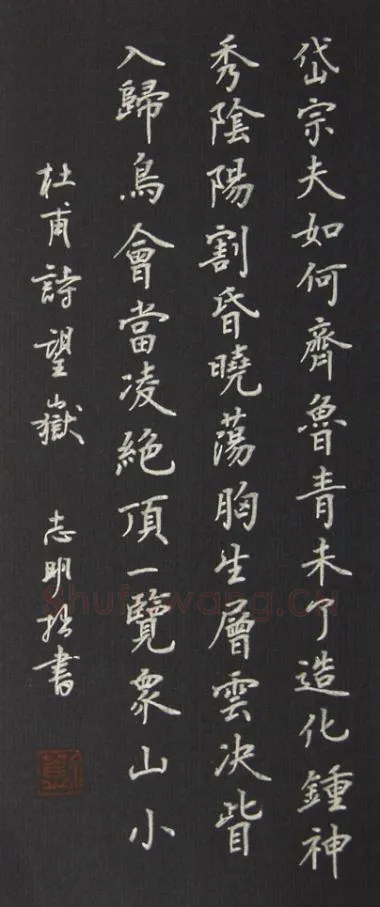 岱宗夫如何齊魯青未了造化鍾神
秀陰陽割昏曉蕩胸生層雲决眥
入歸鳥會當凌絶頂一覽衆山小
杜甫詩望嶽 志明書